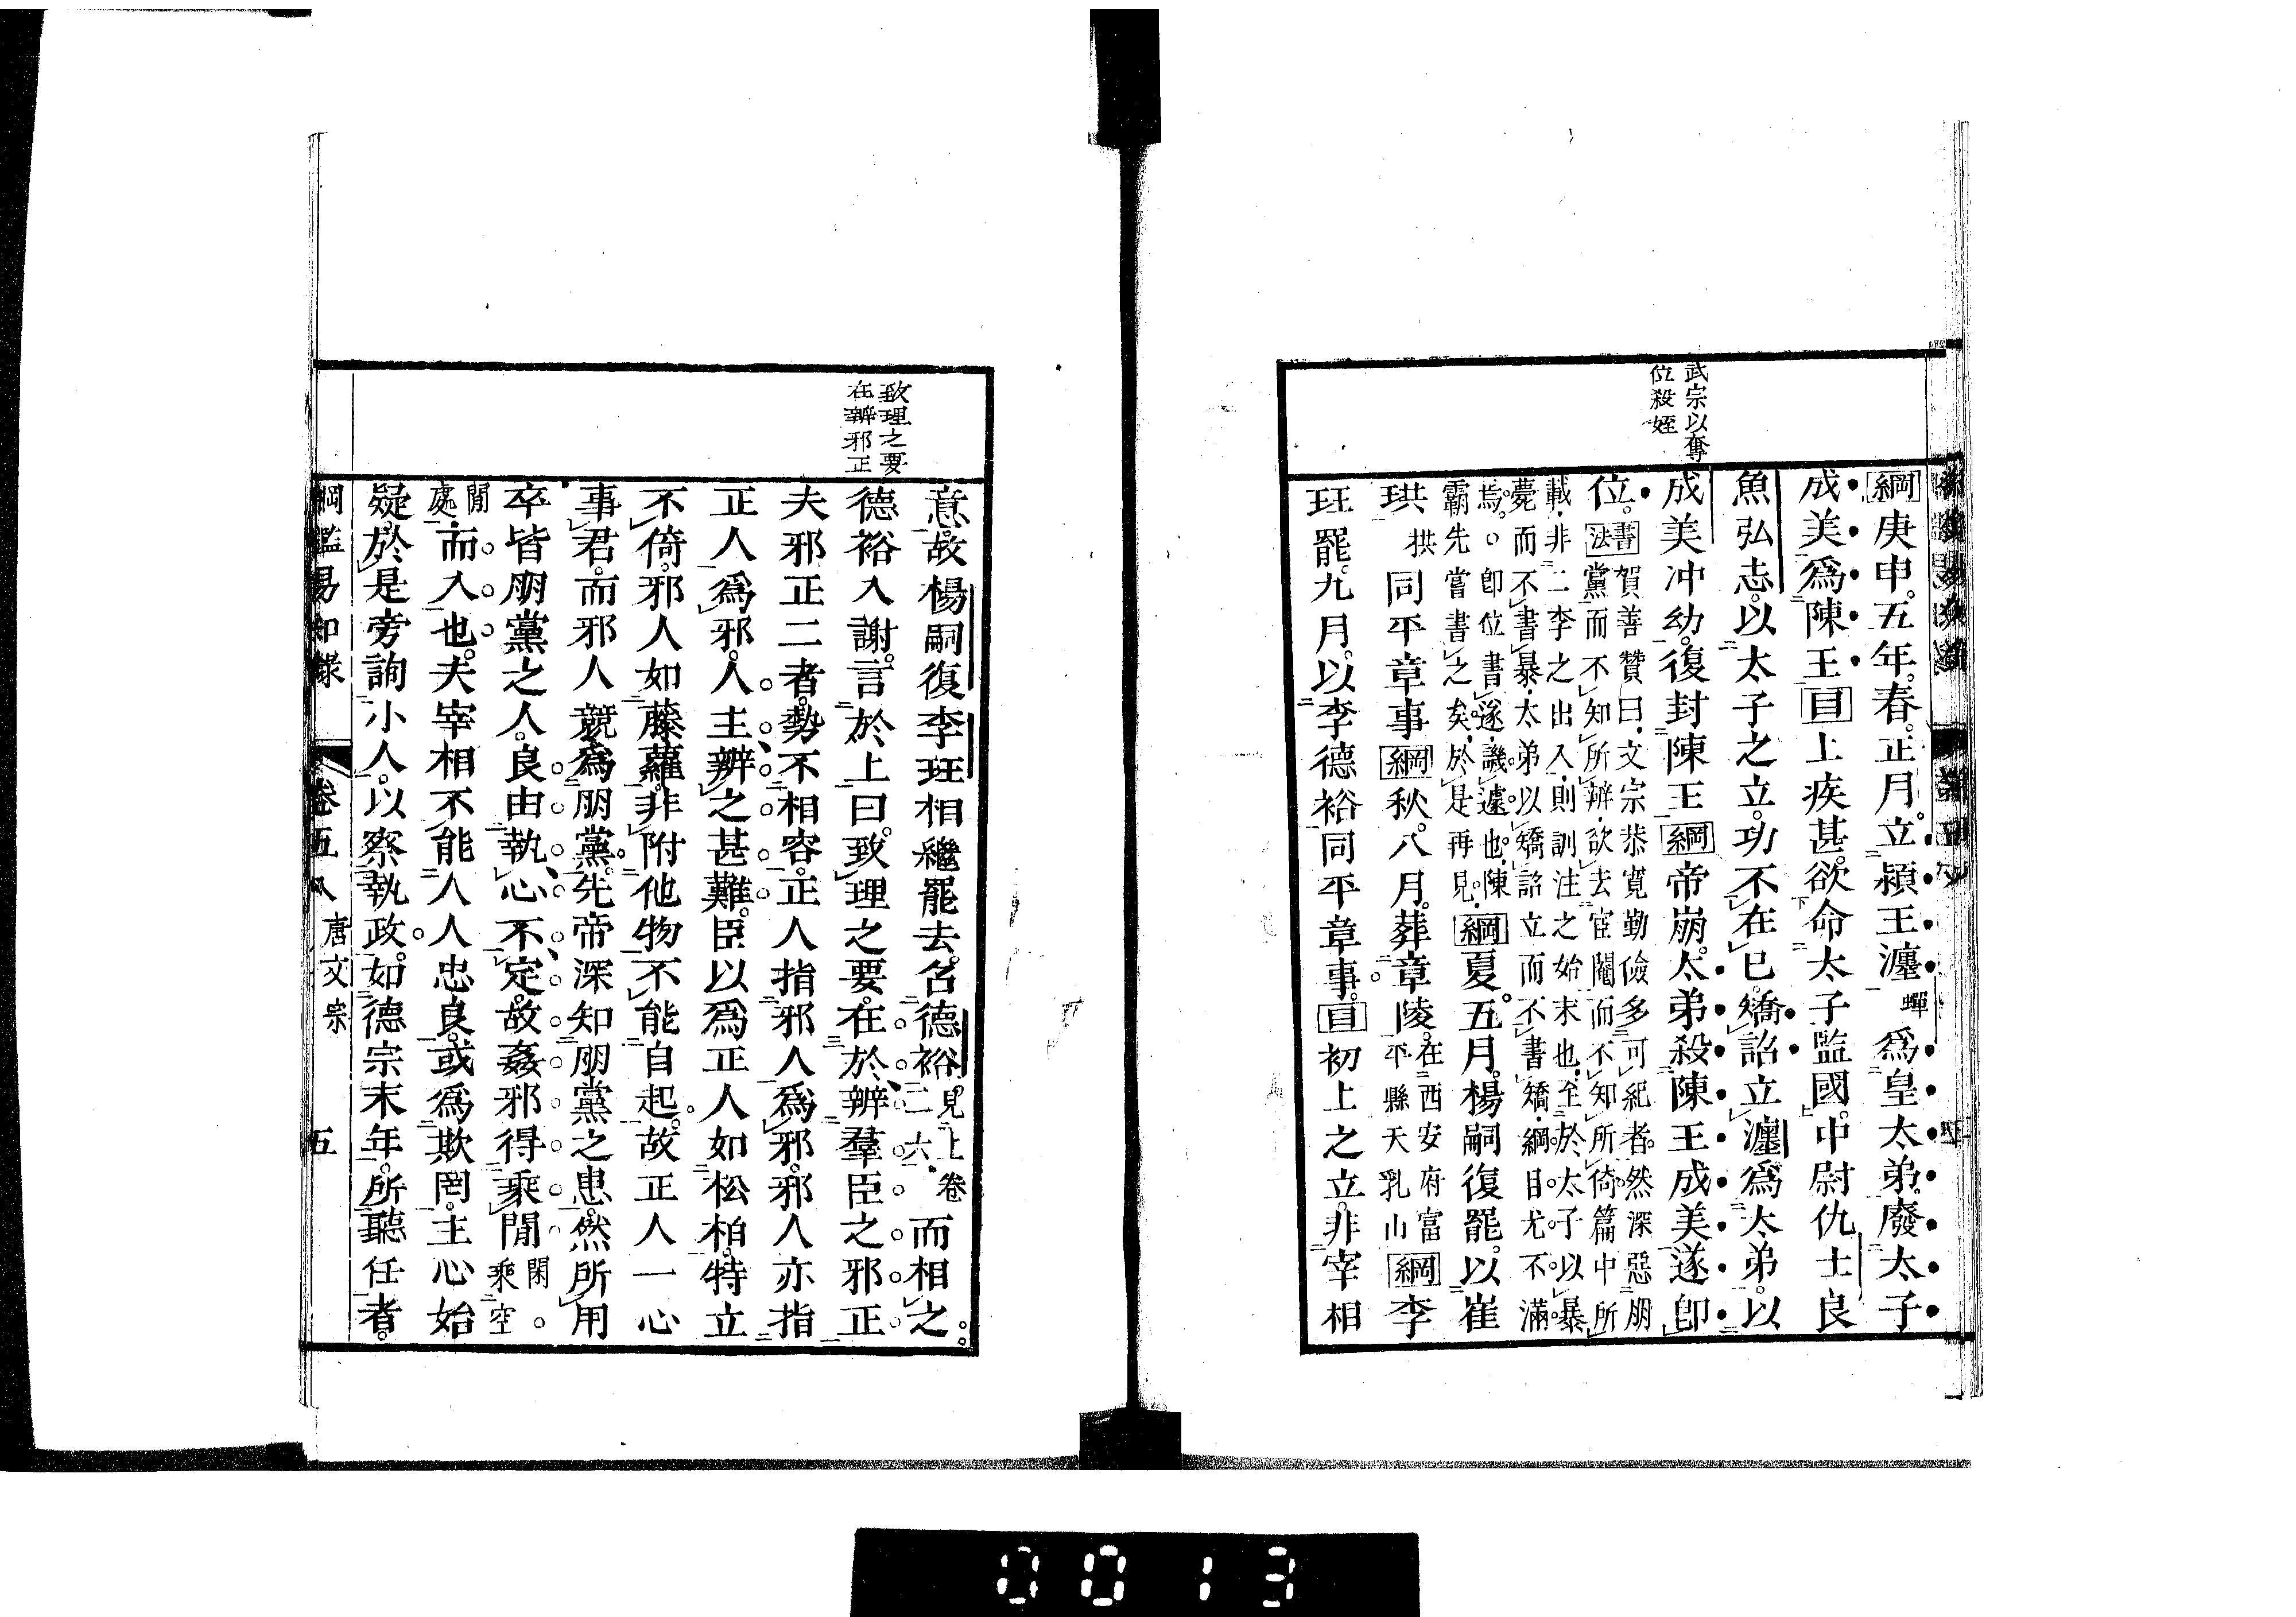 武宗以奪
位殺姪
綱庚申。五年。春。正月。立潁王瀍蟬爲皇太弟。廢太子
成美爲陳王目上疾甚。欲命太子監國。中尉仇士良
魚弘志。以太子之立。功不在已。矯詔立瀍爲太弟。以
成美冲幼。復封陳王綱帝崩。太弟殺陳王成美。遂卽
位。書法賀善贊曰。文宗恭寬勤儉多可紀者。然深惡朋
黨而不知所辨。欲去宦閹而不知所倚。篇中所
載。非二李之出入。則訓注之始末也。至於太子以暴
薨而不書暴。太弟以矯詔立而不書矯。綱目尤不滿
焉。卽位書遂。譏遽也。陳
霸先嘗書之矣。於是再見。綱夏。五月。楊嗣復罷。以崔
珙拱同平章事綱秋。八月。葬章陵。在西安府富
平縣天乳山綱李
珏罷。九月。以李德裕同平章事。目初上之立。非宰相
致理之要
在辨邪正
意。故楊嗣復李珏相繼罷去。召德裕見上卷
二六。而相之。
德裕入謝。言於上曰。致理之要。在於辨羣臣之邪正
夫邪正二者。勢不相容。正人指邪人爲邪。邪人亦指
正人爲邪。人主辨之甚難。臣以爲正人如松柏。特立
不倚。邪人如藤蘿。非附他物。不能自起。故正人一心
事君。而邪人競爲朋黨。先帝深知朋黨之患。然所用
卒皆朋黨之人。良由執心不定。故姦邪得乘閒閑。
乘空
閒
處。而入也。夫宰相不能人人忠良。或爲欺罔。主心始
疑。於是旁詢小人。以察執政。如德宗末年。所聽任者。
綱鑑易知錄
卷五八 唐文宗
五
0013